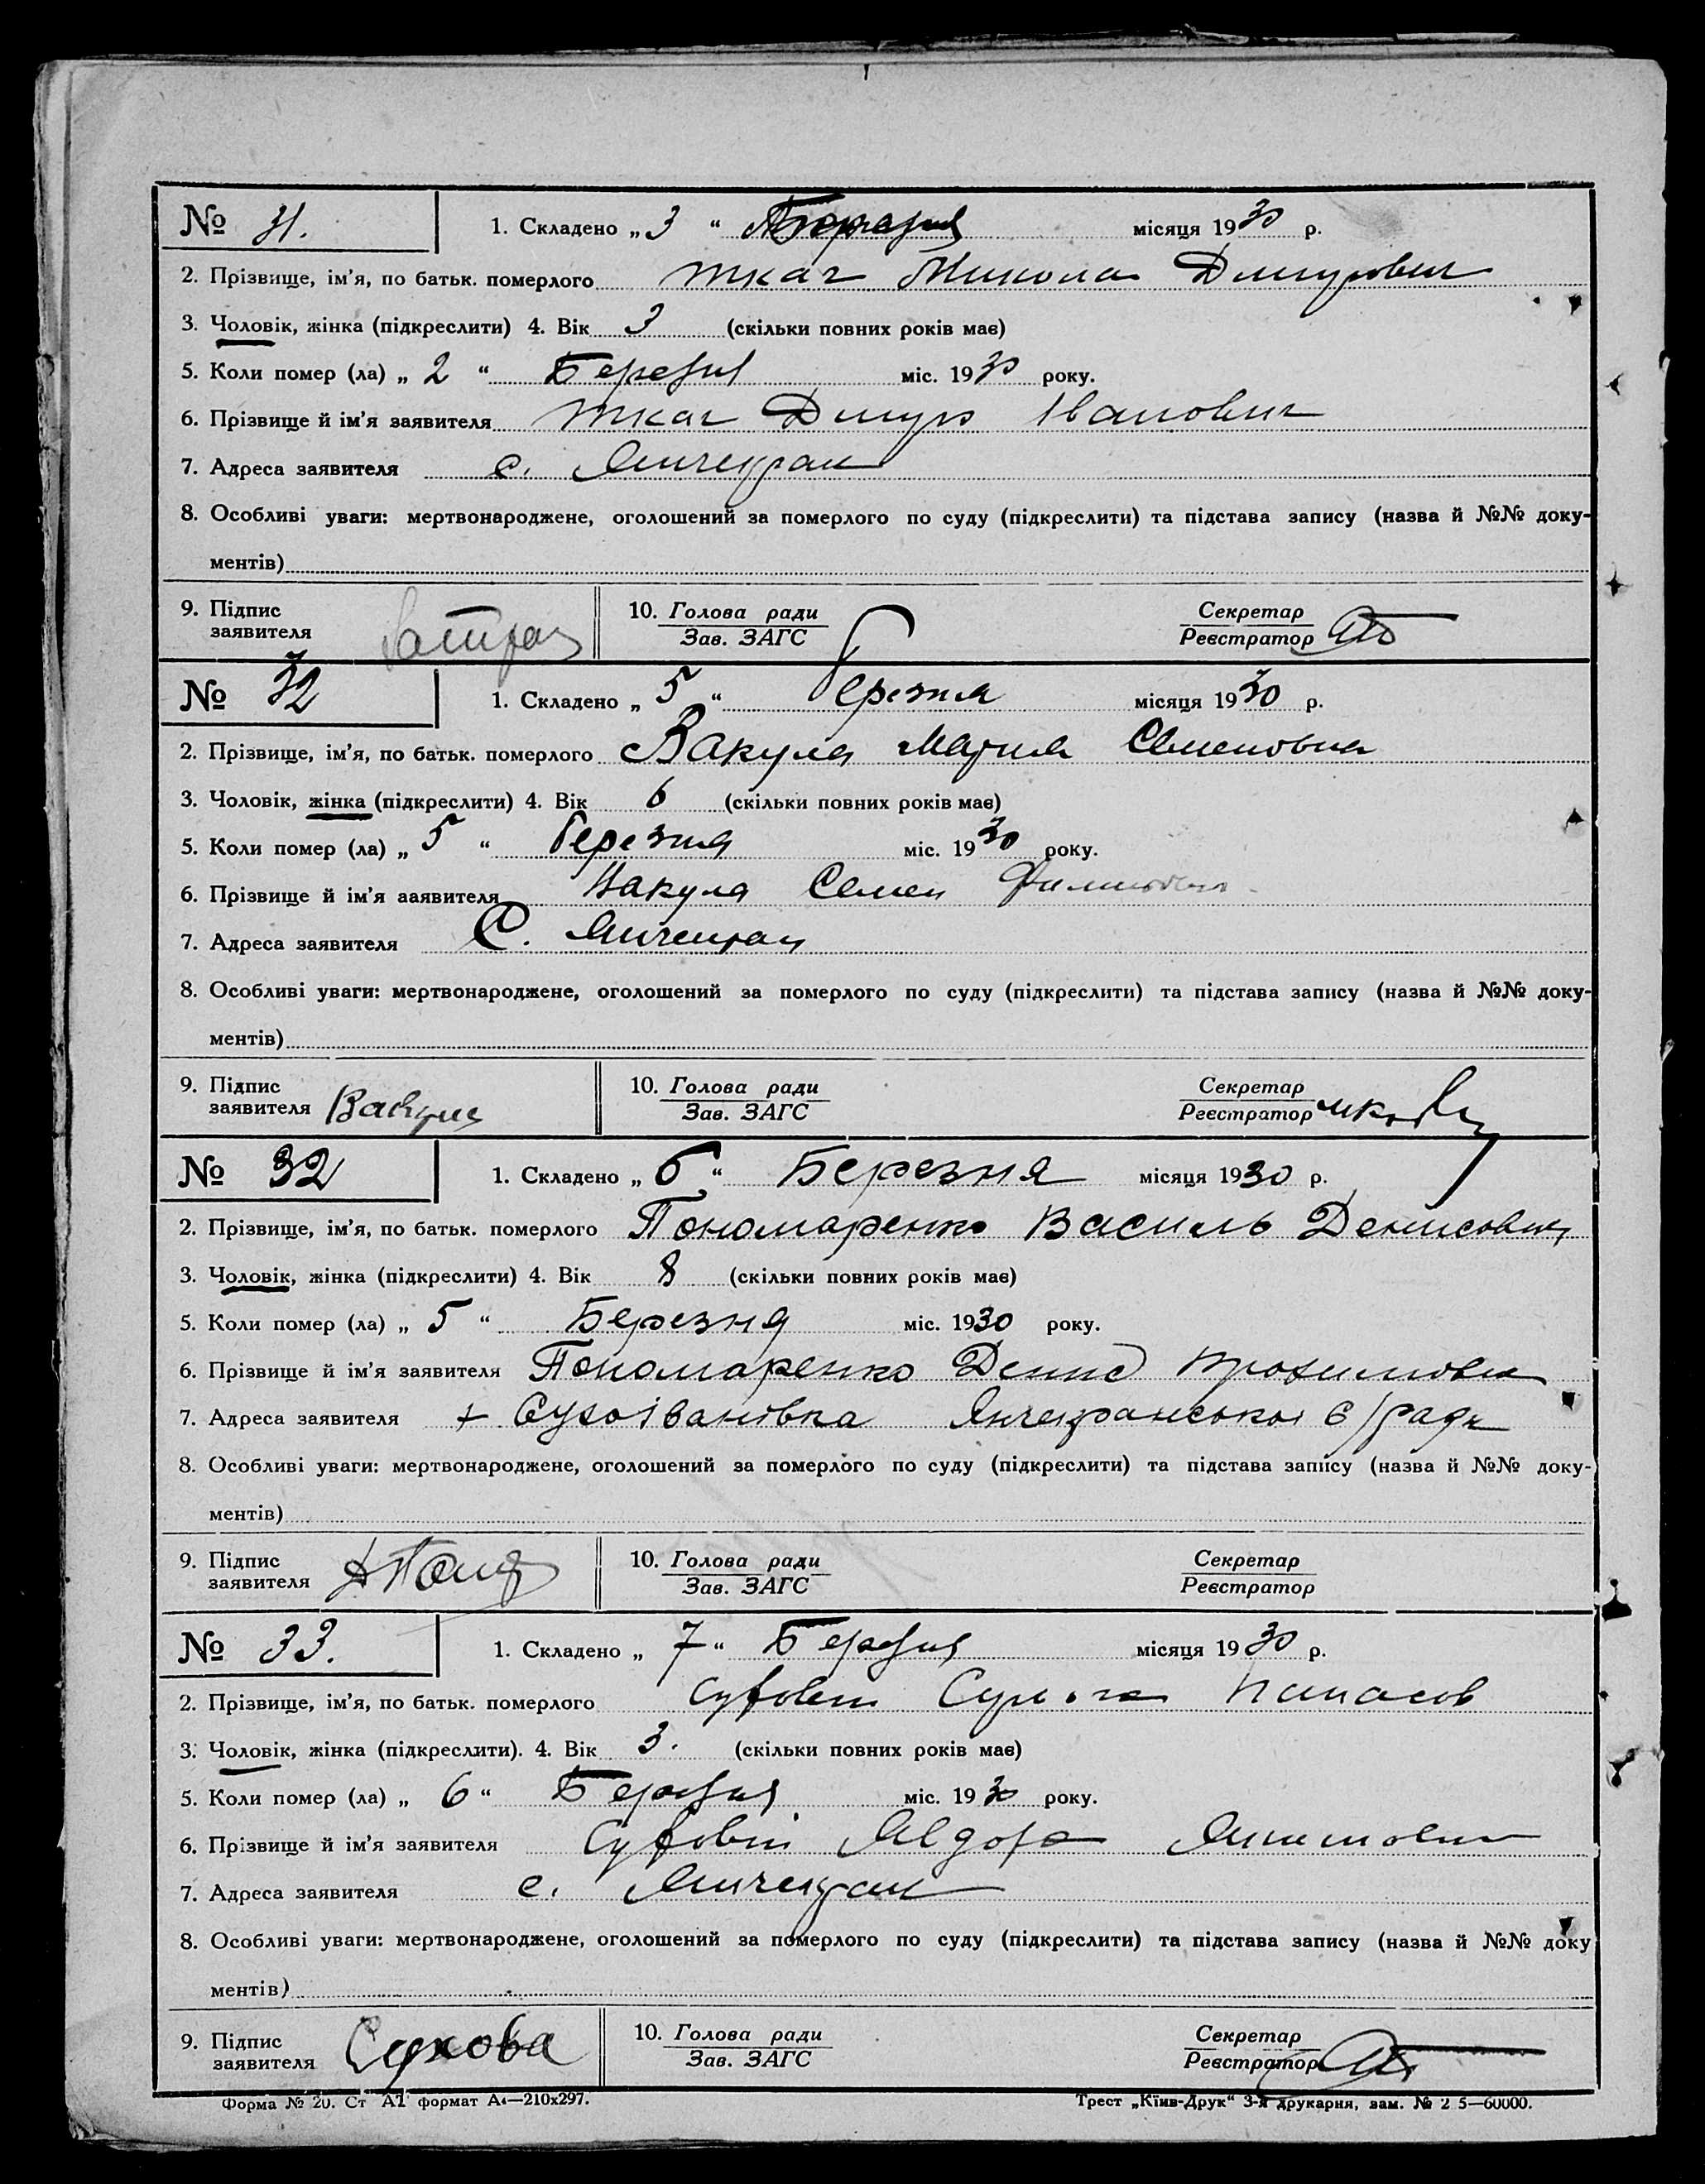 № 31. 1. Складено „ 3 “ Березня місяця 1930 р.
2. Прізвище, ім'я, по батьк. померлого Ткач Микола Дмитрович
3. Чоловік, жінка (підкреслити) 4. Вік 3 (скільки повних років має)
5. Коли помер (ла) „ 2 “ Березня міс. 1930 року.
6. Прізвище й ім'я заявителя Ткач Дмитро Іванович
7. Адреса заявителя с. Янчекрак
8. Особливі уваги: мертвонароджене, оголошений за померлого по суду (підкреслити) та підстава запису (назва й №№ доку-
ментів)
9. Підпис заявителя 10. Голова ради Зав. ЗАГС Секретар Реєстратор
№ 32 1. Складено „ 5 “ березня місяця 1930 р.
2. Прізвище, ім'я, по батьк. померлого Вакула Мария Семеновна
3. Чоловік, жінка (підкреслити) 4. Вік 6 (скільки повних років має)
5. Коли помер (ла) „ 5 “ березня міс. 1930 року.
6. Прізвище й ім'я ааявителя Вакула Семен
7. Адреса заявителя С. Янчекрак
8. Особливі уваги: мертвонароджене, оголошений за померлого по суду (підкреслити) та підстава запису (назва й №№ доку-
ментів)
9. Підпис заявителя Вакула 10. Голова ради Зав. ЗАГС Секретар Реєстратор
№ 32 1. Складено „ 6 “ Березня місяця 1930 р.
2. Прізвище, ім'я, по батьк. померлого Пономаренко Василь Денисович
3. Чоловік, жінка (підкреслити) 4. Вік 8 (скільки повних років має)
5. Коли помер (ла) „ 5 “ Березня міс. 1930 року.
6. Прізвище й ім'я заявителя Пономаренко Денис
7. Адреса заявителя х Сухоіванівка Янчекранської с/ради
8. Особливі уваги: мертвонароджене, оголошений за померлого по суду (підкреслити) та підстава запису (назва й №№ доку-
ментів)
9. Підпис заявителя 10. Голова ради Зав. ЗАГС Секретар Реєстратор
№ 33. 1. Складено „ 7 “ Березня місяця 1930 р.
2. Прізвище, ім'я, по батьк. померлого
3. Чоловік, жінка (підкреслити). 4. Вік 3. (скільки повних років має)
5. Коли помер (ла) „ 6 “ Березня міс. 1930 року.
6. Прізвище й ім'я заявителя
7. Адреса заявителя с. Янчекрак
8. Особливі уваги: мертвонароджене, оголошений за померлого по суду (підкреслити) та підстава запису (назва й №№ доку
ментів)
9. Підпис заявителя Сухова 10. Голова ради Зав. ЗАГС Секретар Реєстратор
Форма № 20. Ст А1 формат А4—210х297. Трест „Київ-Друк“ 3-я друкарня, зам. № 2 5—60000.